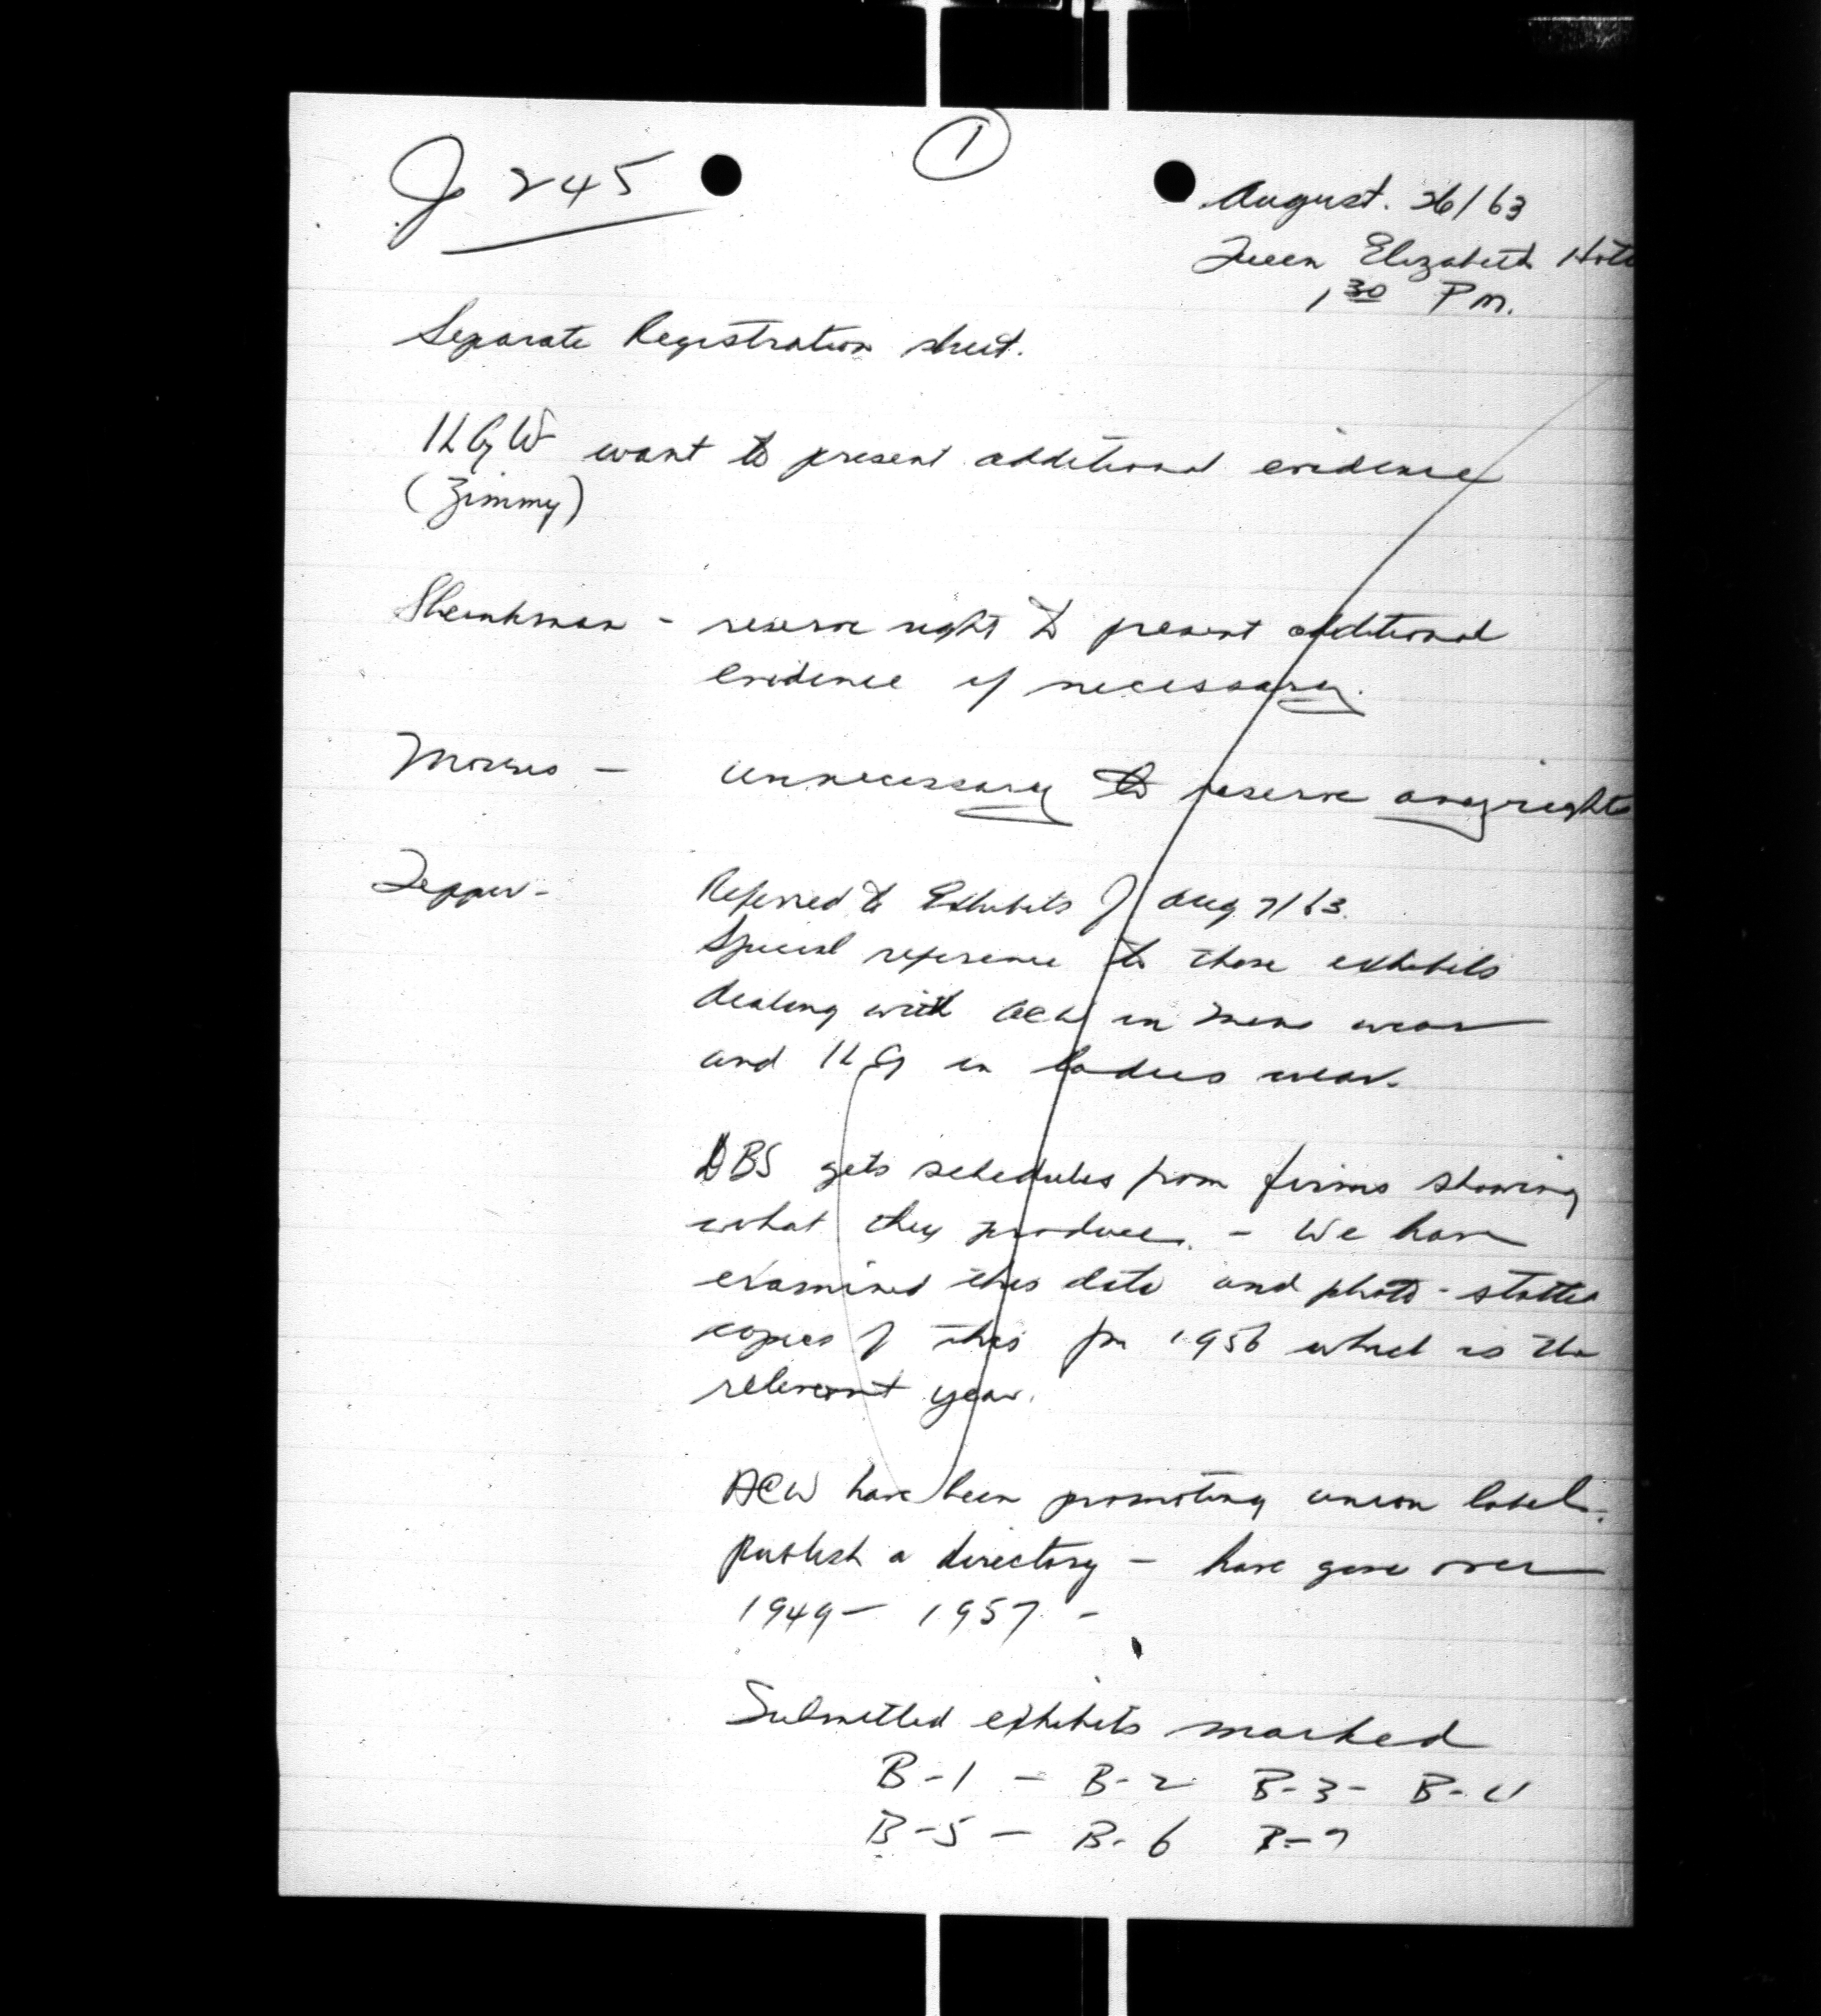 J 245
1
August. 26/63
Queen Elizabeth Hote
1 30 PM.
Separate Registration sheet.
ILGW want to present additional evidence
(Zimmy)
Sheinkman - reserve right to present additional
evidence if necessary.
Morris - unnecessary to reserve any rights
Tepper - Referred to Exhibits of Aug 7/63.
Special reference to those exhibits
dealing with ACW in mens wear
and ILG in ladies wear.
DBS gets schedules from firms showing
what they produce. - We have
examined this data and photo-stated
copies of this for 1956 which is the
relevant year.
ACW have been promoting union label.
publish a directory - have gone over
1949 - 1957 -
Submitted exhibits marked
B-1 - B-2 B-3 - B-4
B-5 - B-6 B-7